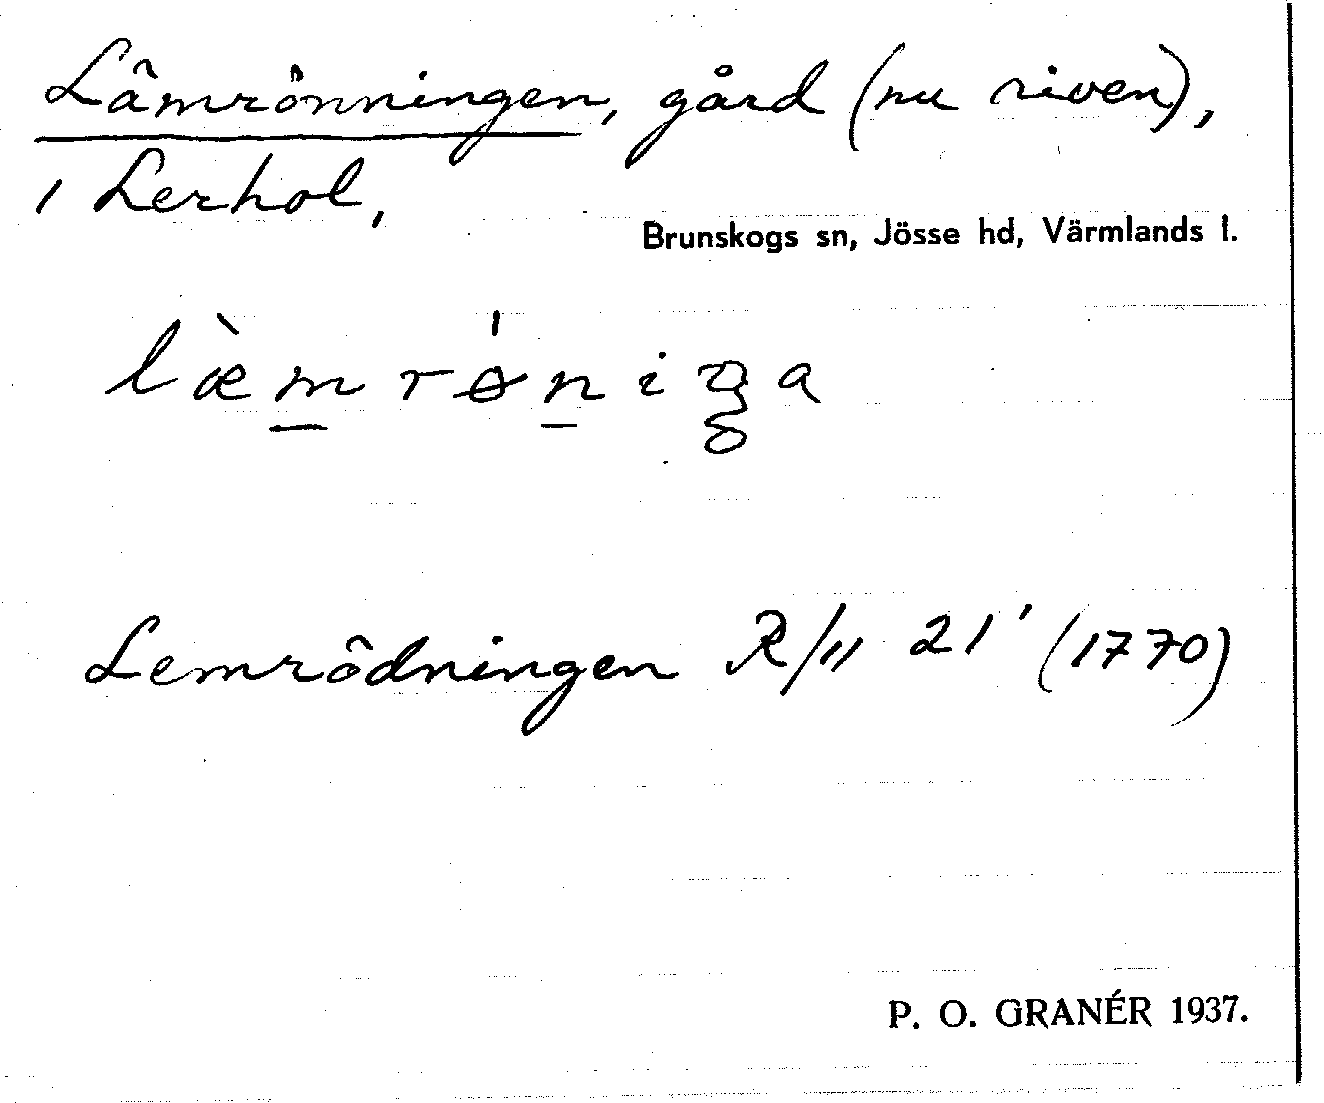 Lämrönningen, gård (nu riven),
i Lerhol,
Brunskogs sn, Jösse hd, Värmlands l.
læ̀mrǿniŋa
Lemrödningen R/11 21' (1770)
P. O. GRANÉR 1937.